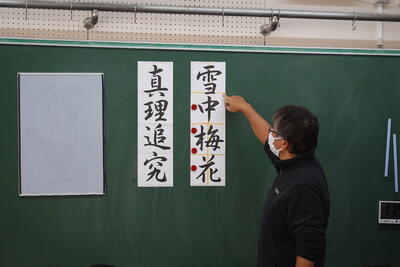 雪中梅花
真理追究